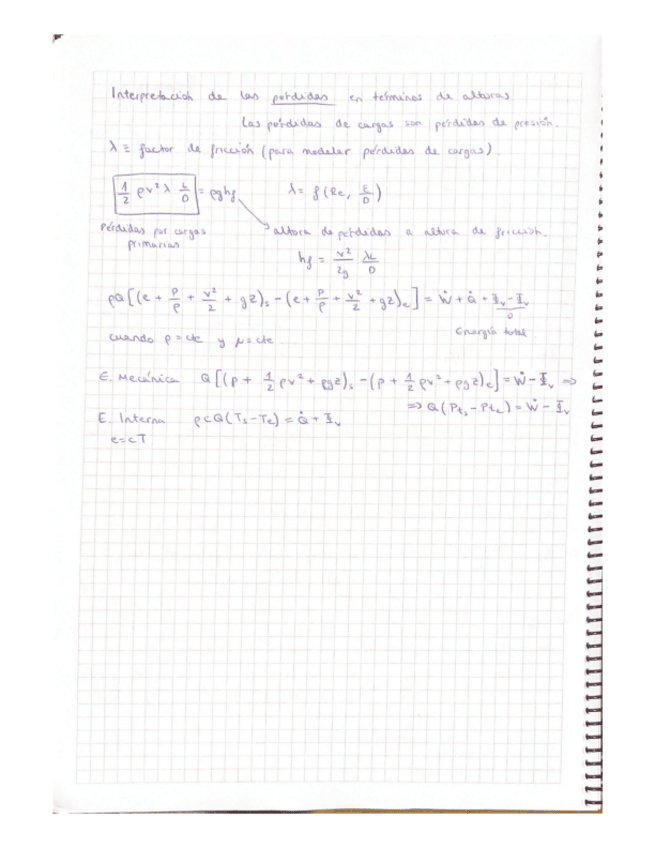 Interpretación de las pérdidas en términos de alturas.
Las pérdidas de cargas son pérdidas de presión.
λ ≡ factor de fricción (para modelar pérdidas de cargas).
1/2 ρv² λ L/D = ρghf    λ = f(Re, ε/D)
Pérdidas por cargas primarias
altura de pérdidas a altura de fricción.
hf = v²/2g λL/D
ρQ[(e + p/ρ + v²/2 + gz)s - (e + p/ρ + v²/2 + gz)e] = Ẇ + Q̇ + Φv - Φv
0
Energía total
cuando ρ = cte y μ = cte
E. Mecánica Q[(p + 1/2 ρv² + ρgz)s - (p + 1/2 ρv² + ρgz)e] = Ẇ - Φv ⇒
⇒ Q(Pts - Pte) = Ẇ - Φv
E. Interna ρcQ(Ts - Te) = Q̇ + Φv
e = cT